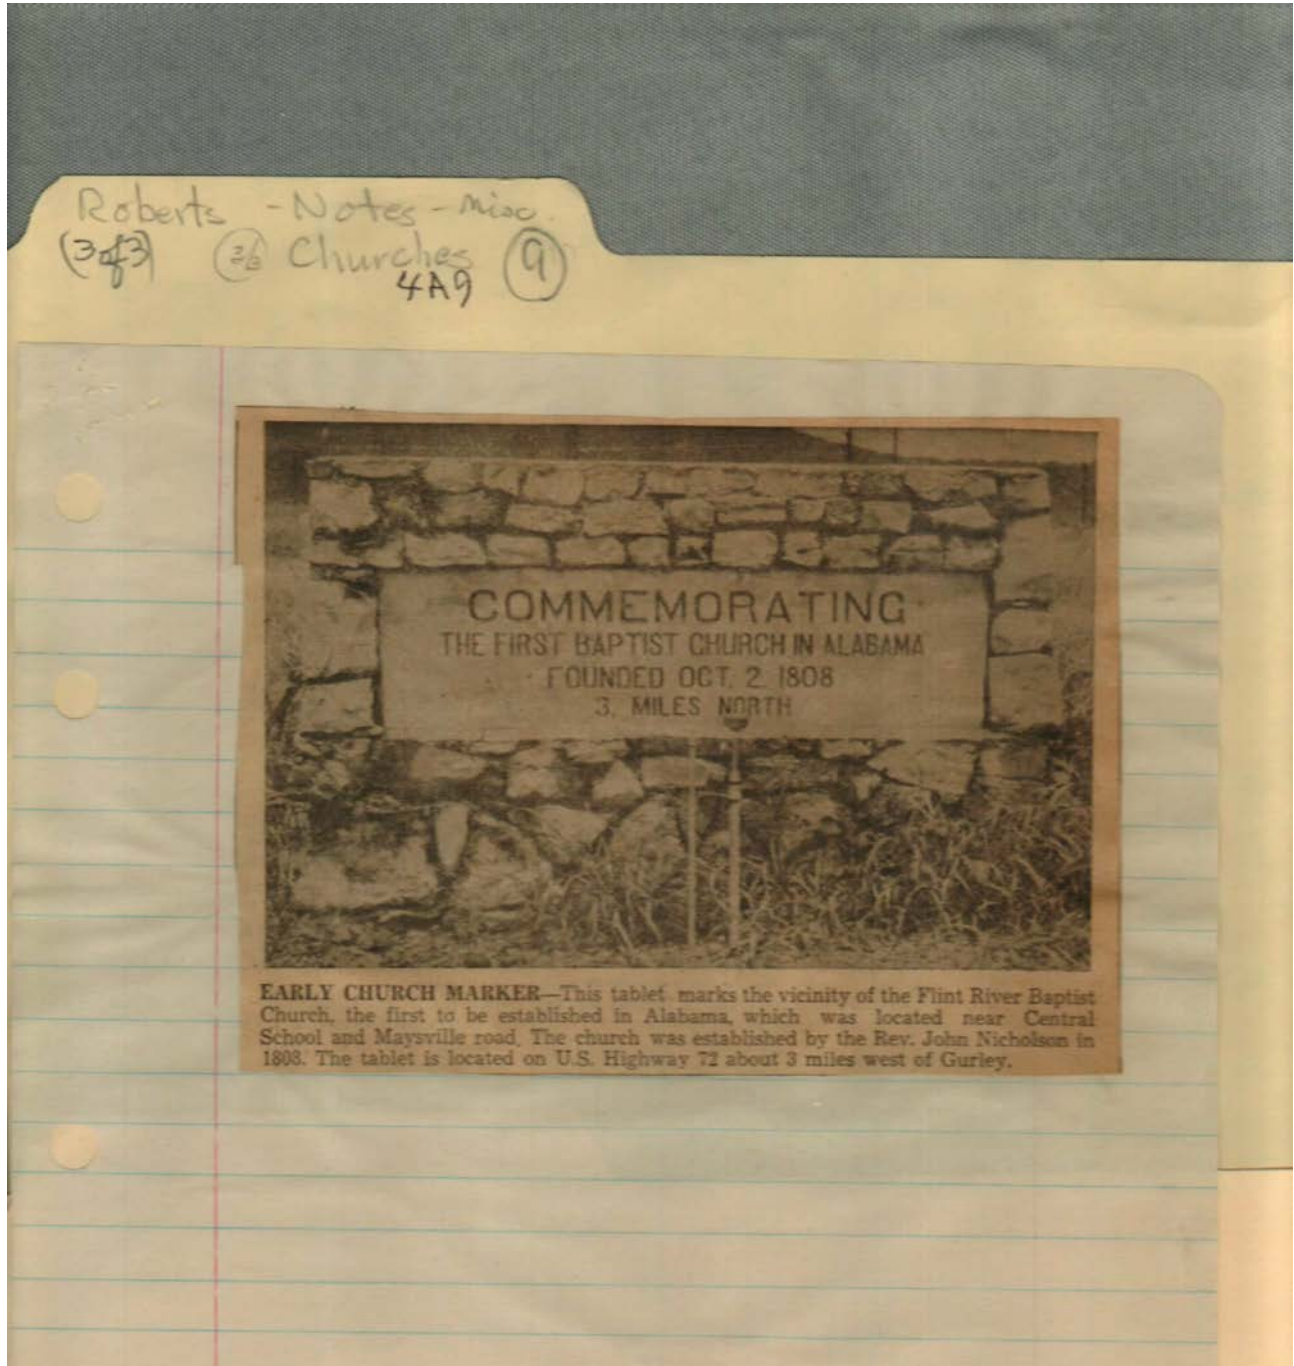 Roberts - Notes - misc.
(3 of 3) Churches 9
4A9
COMMEMORATING
THE FIRST BAPTIST CHURCH IN ALABAMA
FOUNDED OCT. 2 1808
3. MILES NORTH
EARLY CHURCH MARKER—This tablet marks the vicinity of the Flint River Baptist
Church, the first to be established in Alabama, which was located near Central
School and Maysville road. The church was established by the Rev. John Nicholson in
1808. The tablet is located on U.S. Highway 72 about 3 miles west of Gurley.